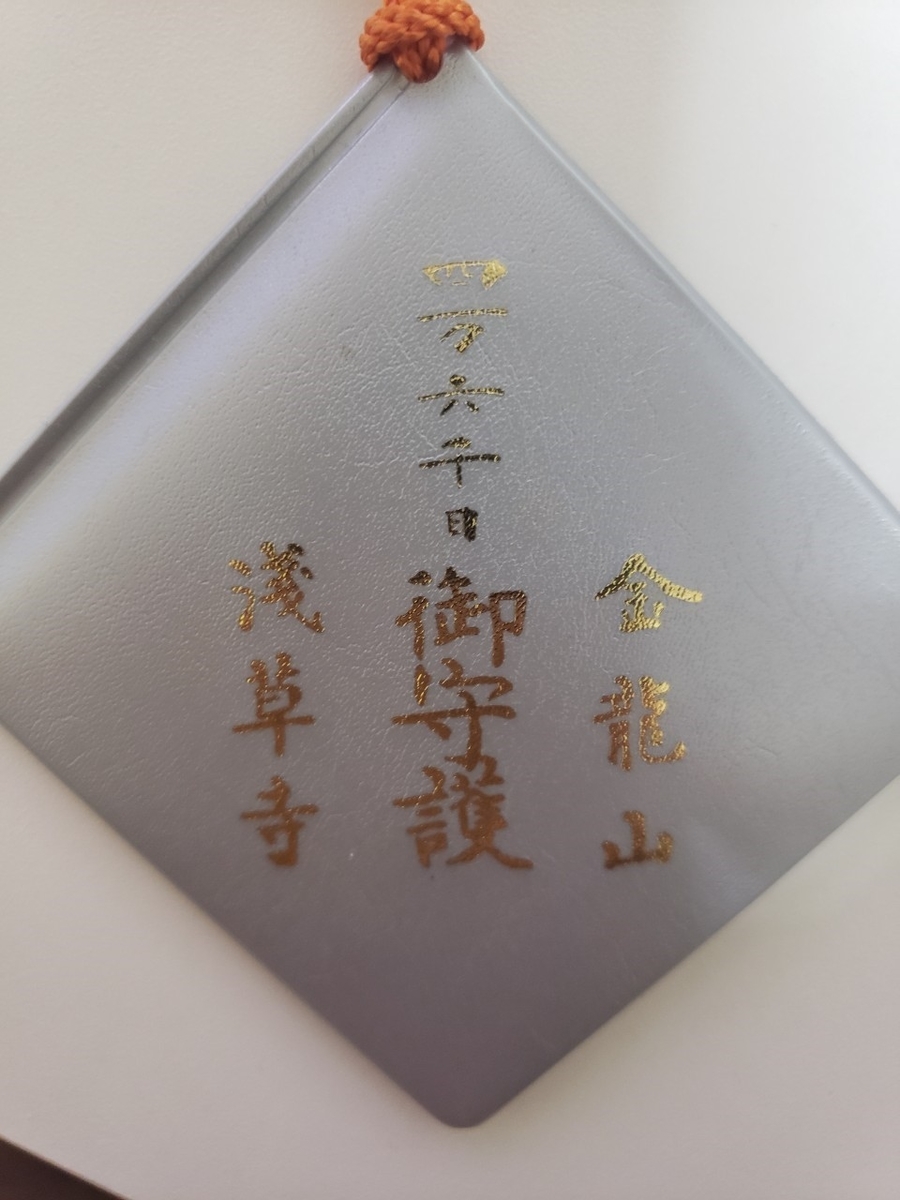 金龍山
四万六千日御守護
淺草寺